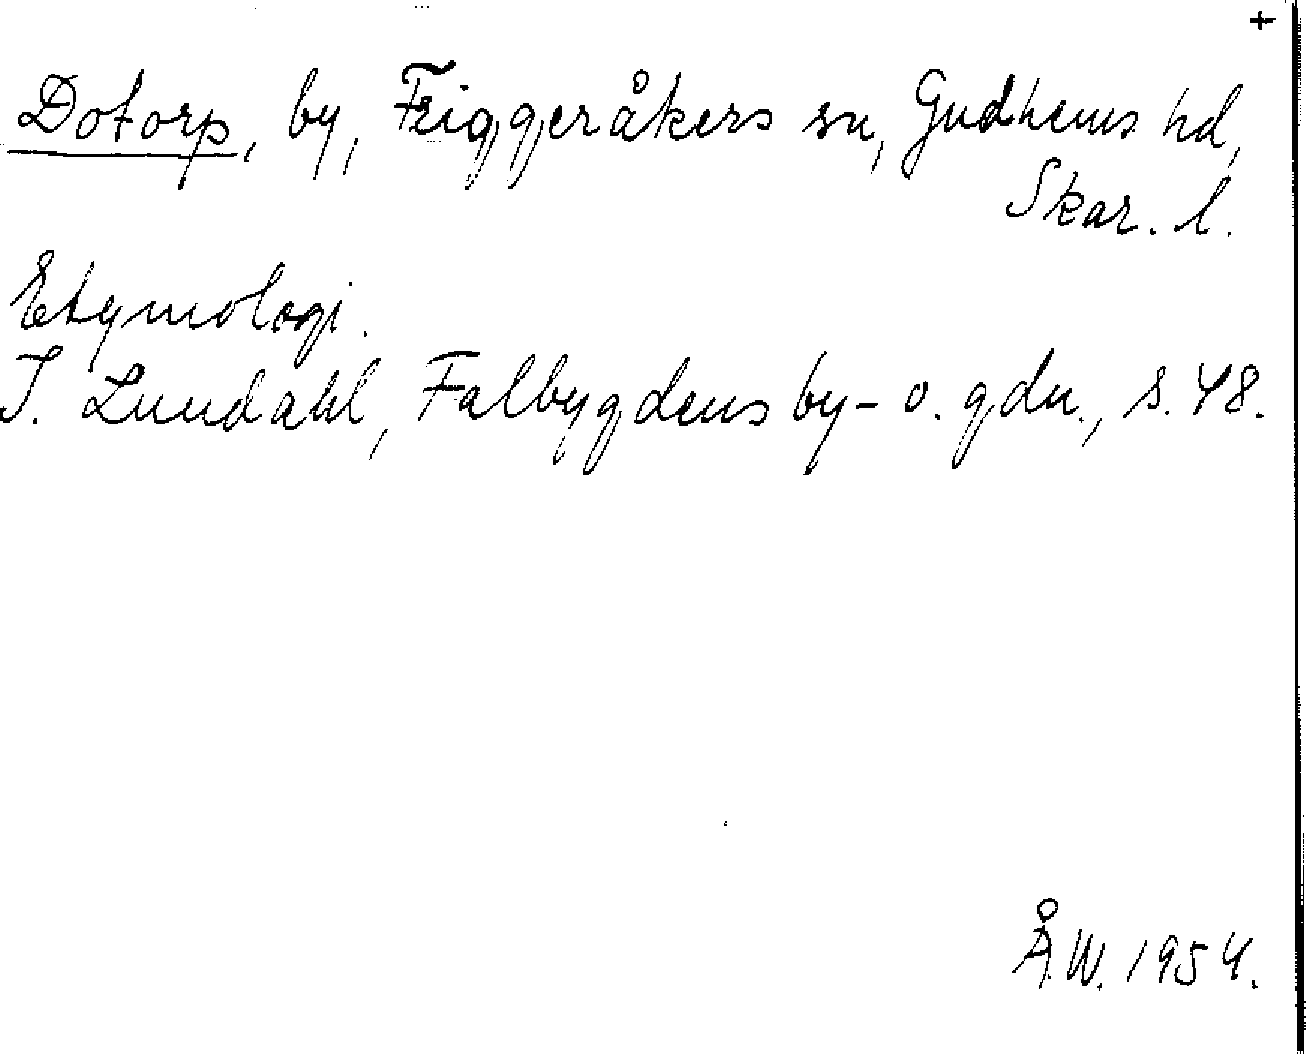 +
Dotorp, by, Friggeråkers sn, Gudhems hd,
Skar. l.
Etymologi.
I. Lundahl, Falbygdens by- o. gdn., s. 48.
Å.W. 1954.